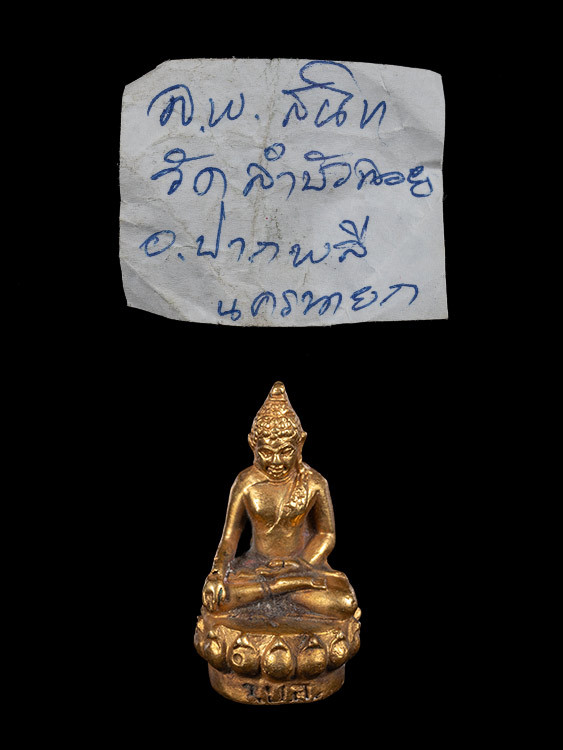 ล.พ. สนิท
วัด ลำบัวลอย
อ.ปากพลี
นครนายก